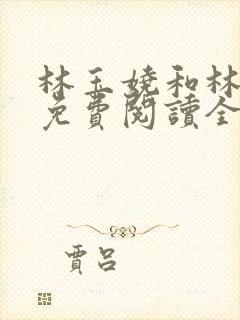 林玉嬈和林
免費閱讀全
賈呂